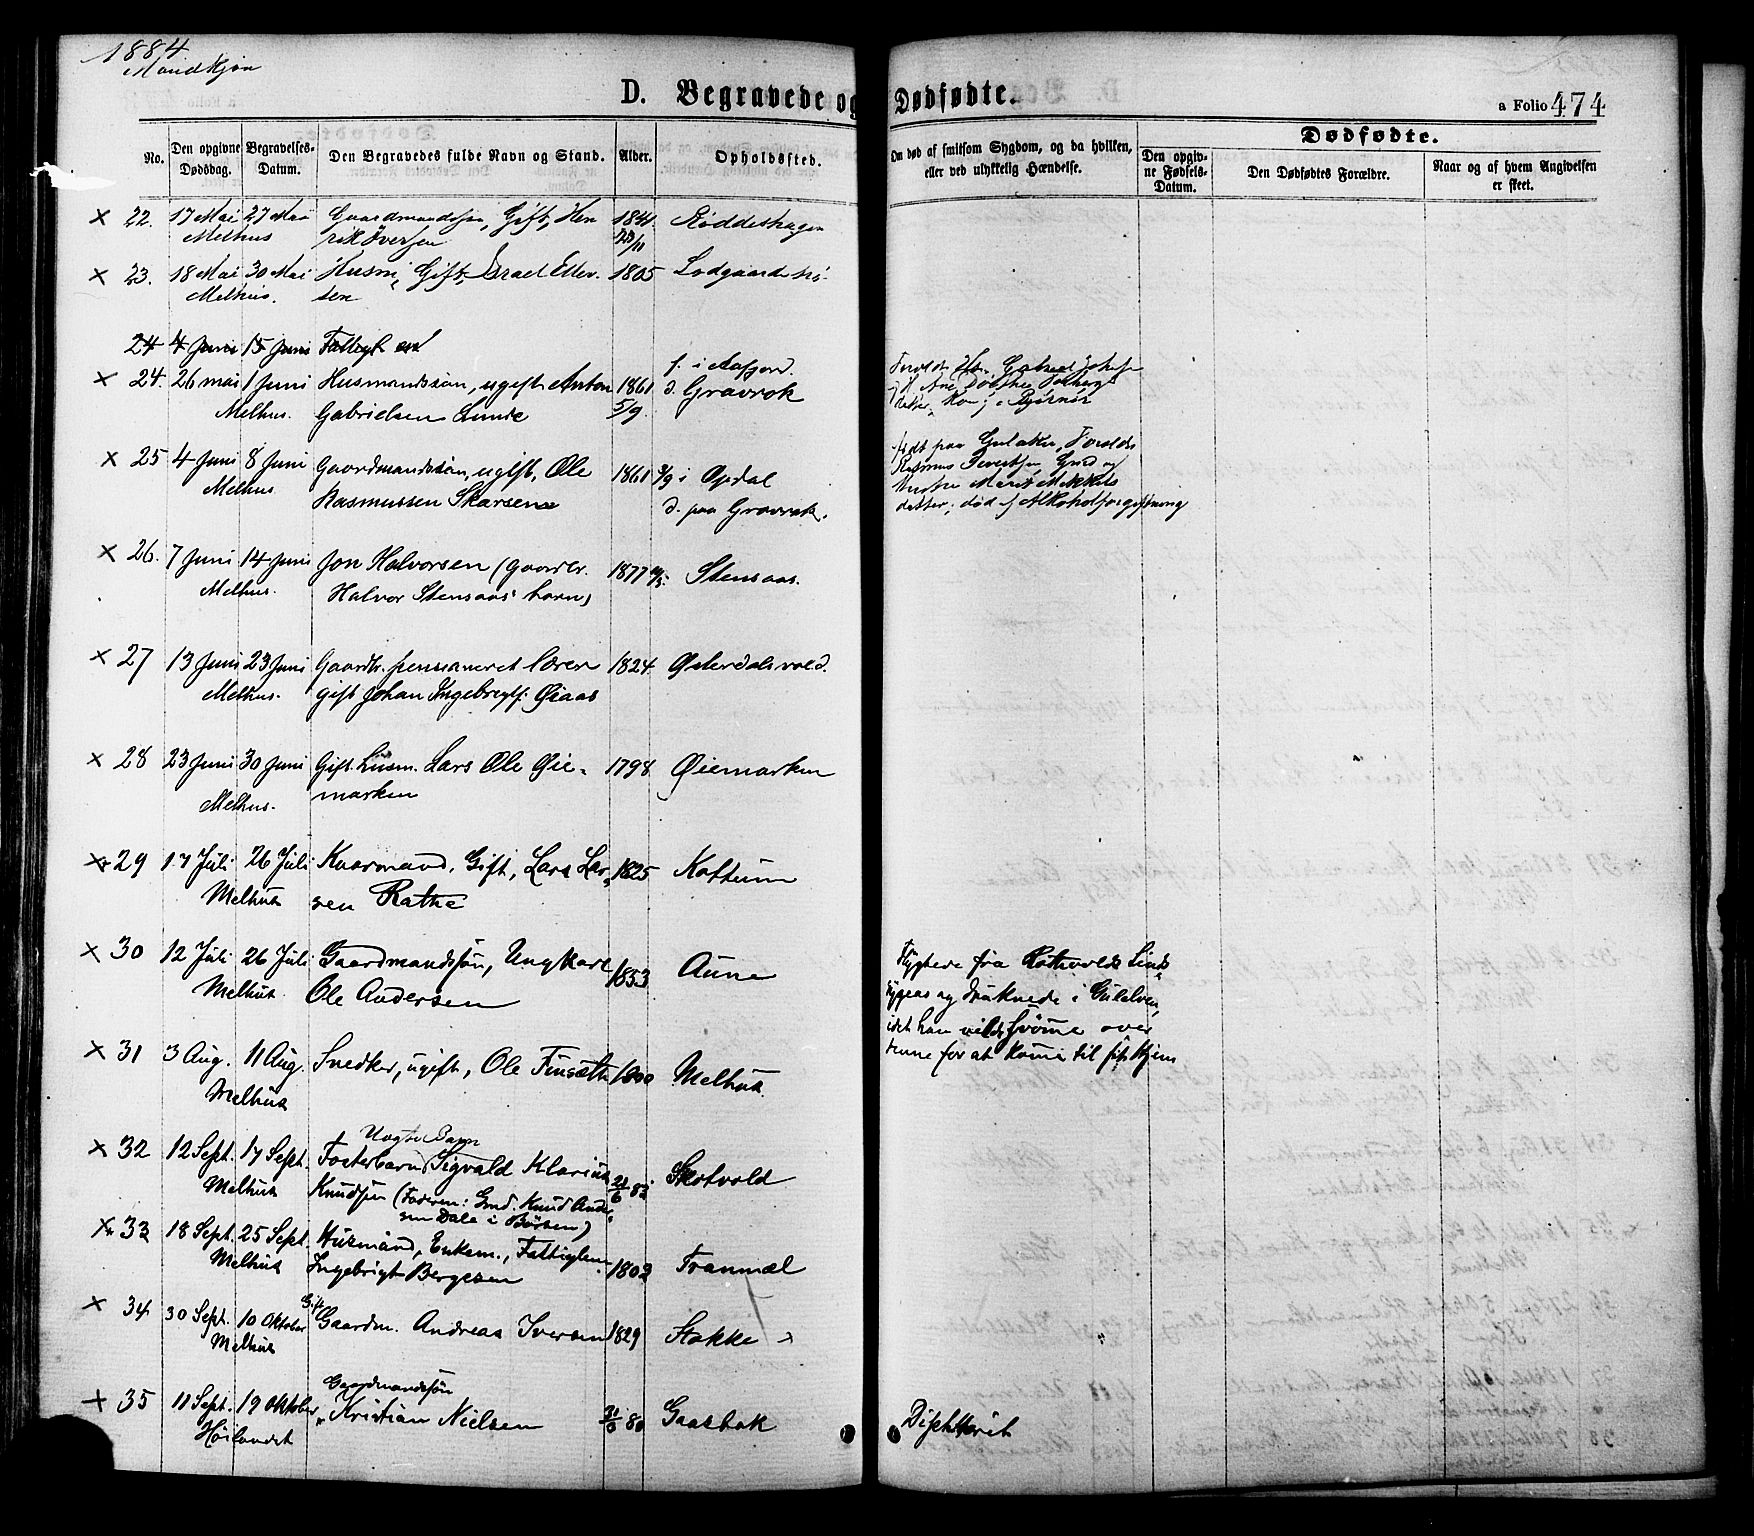 1884
Mandkjøn
D. Begravede og Dødfødte.
a Folio 474
No.
Den opgivne Dødsdag.
Begravelses-Datum.
Den Begravedes fulde Navn og Stand.
Alder.
Opholdssted.
Om død af smitsom Sygdom, og da hvilken,
eller ved ulykkelig Hændelse.
Dødfødte.
Den opgiv-
ne Fødsels-
Datum.
Den Dødfødtes Forældre.
Naar og af hvem Angivelsen
er skeet.
× 22. 17 Mai 27 Mai Gaardmandssøn, Gift, Hen 1841 Røddeshagen
Melhus rik Iversen 23/11
× 23. 18 Mai 30 Mai Husm, Gift, Israel Eller- 1805 Lodgaards
Melhus. sen
24 4 Juni 15 Juni Fattigl
f. i Aafjord
× 24. 26 mai 1 Juni Husmandssøn, ugift Anton 1861 d. Gravrok
Melhus. Gabrielsen Lunde 5/9.
Gabriel
i Bjørnør
× 25 4 Juni 8 Juni Gaardmandssøn, ugift, Ole 1861 i Opdal
Melhus Rasmussen Skarsem d. paa Gravrok.
født paa Forældre
Rasmus Sivertsen
Hustru Marit Mikkels
datter; død af Alkoholforgiftning
× 26. 7 Juni 14 Juni Jon Halvorsen (gaardbr. 1877 Stensaas.
Melhus. Halvor Stensaas' barn)
× 27 13 Juni 23 Juni Gaardbr. pensioneret lærer 1824. Østerdalsvold.
Melhus. gift Johan Ingebrigts. Øiaas
× 28 23 Juni 30 Juni Gift. Husm. Lars Ole Øie- 1798. Øiemarken
Melhus. marken
× 29 17 Juli 26 Juli Kaarmand, Gift, Lars Lar- 1825 Kottum
Melhus sen Rathe
× 30 12 Juli 26 Juli Gaardmandssøn, Ungkarl 1853 Aune
Melhus Ole Andersen
Flygtede fra Rotvolds Sinds-
sygeas og druknede i Gulelven,
idet han vilde svømme over
denne for at komme til sit Hjem
× 31 3 Aug. 11 Aug. Snedker, ugift, Ole Finsæth 1800 Melhus
Melhus
Uægte Barn
× 32 12 Sept. 17 Sept. Fosterbarn Sigvald Klarius 21/6 83 Skotvold
Melhus Knudsen (Faderen: Gmd. Knud Ander-
sen Dale i Børsen)
× 33 18 Sept. 25 Sept. Husmand, Enkem., Fattiglem 1802 Tranmæl
Melhus Ingebrigt Bergesen
Gift
× 34 30 Sept. 10 Oktober Gaardm. Andreas Iversen 1829 Stokke
Melhus
Gaardmandssøn
× 35 11 Sept. 19 Oktober Kristian Nielsen 80 Gaasbak
Høilandet
Diphtherit